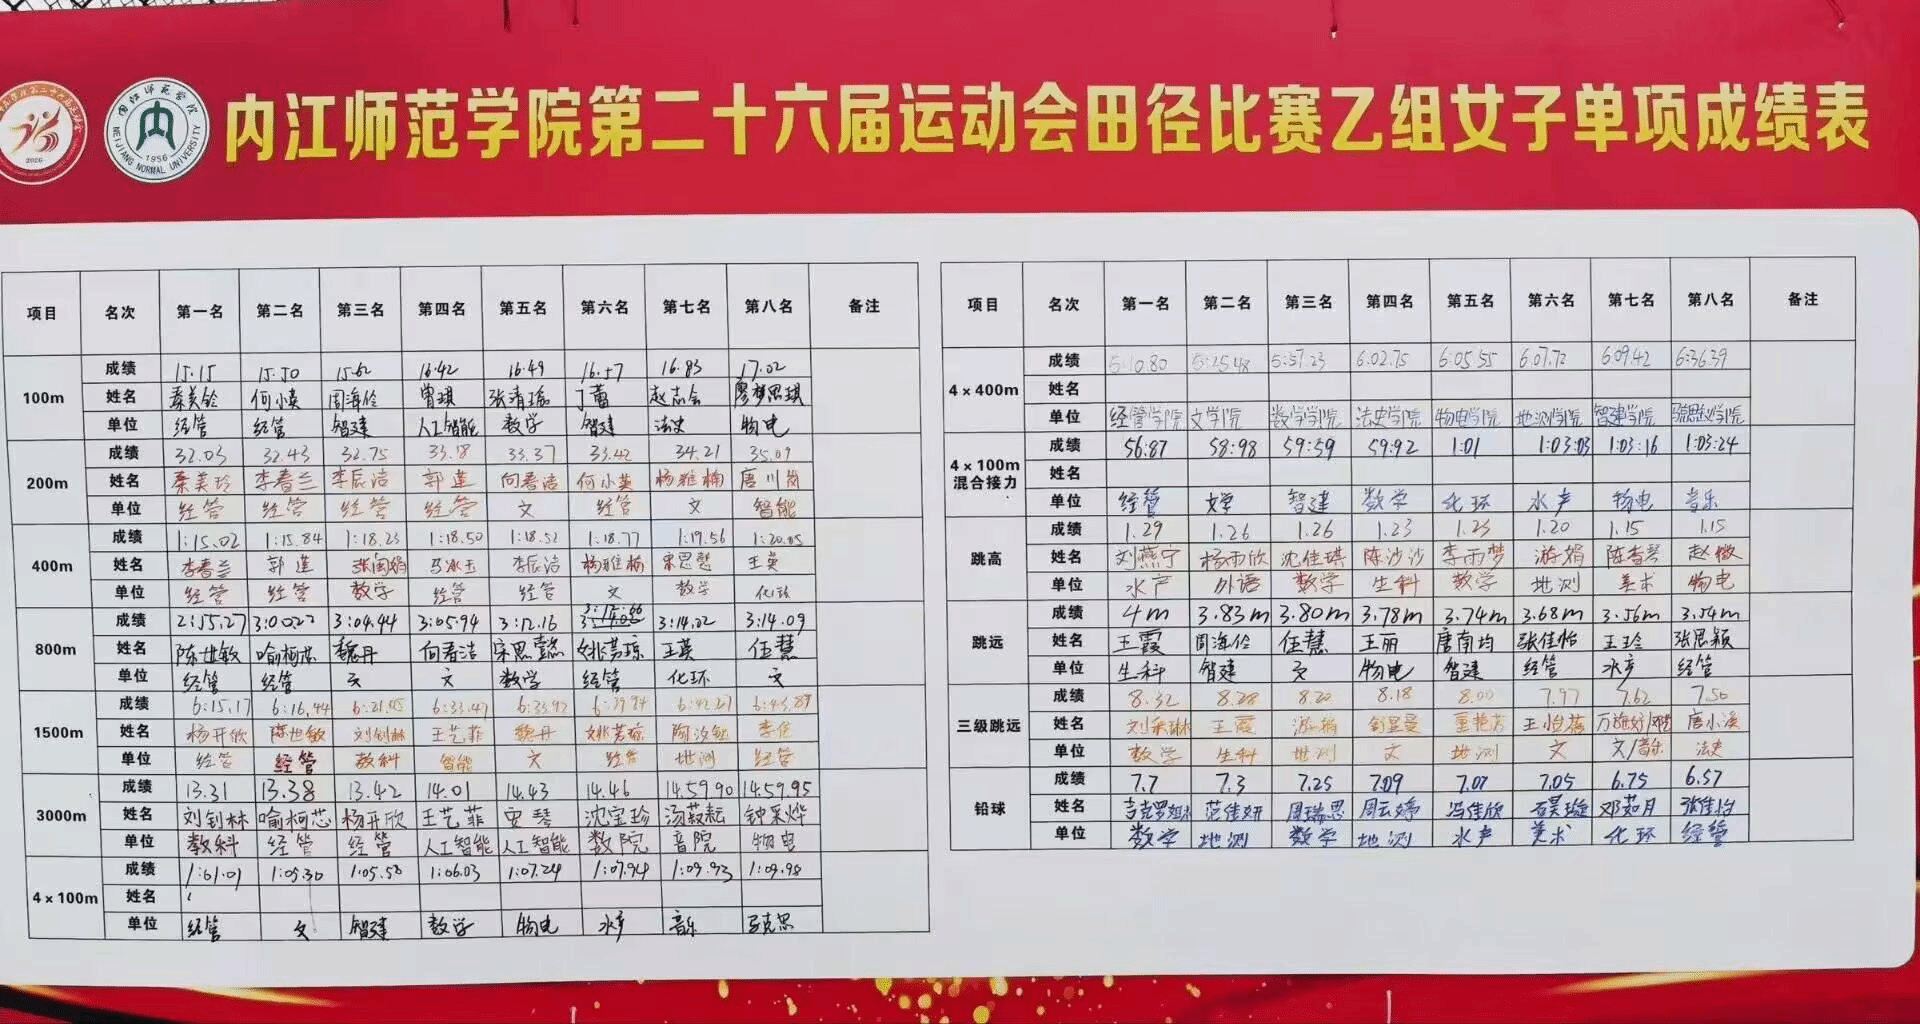 内江师范学院第二十六届运动会田径比赛乙组女子单项成绩表
内江师范学院
NEIJIANG NORMAL UNIVERSITY
1956
2026
项目 名次 第一名 第二名 第三名 第四名 第五名 第六名 第七名 第八名 备注
100m
成绩 15.15 15.50 15.62 16.42 16.49 16.57 16.83 17.02
姓名 秦美玲 何小英 周海伶 曾琪 张清瑜 丁蕾 赵志会 廖梦思琪
单位 经管 经管 智建 人工智能 数学 智建 法史 物电
200m
成绩 32.03 32.43 32.75 33.18 33.37 33.42 34.21 35.09
姓名 秦美玲 李春兰 李辰洁 郭莲 向春洁 何小英 杨雅楠 唐川
单位 经管 经管 经管 经管 文 经管 文 智能
400m
成绩 1:15.02 1:15.84 1:18.23 1:18.50 1:18.52 1:18.77 1:19.56 1:20.05
姓名 李春兰 郭莲 马冰玉 李辰洁 杨雅楠 宋思懿 王英
单位 经管 经管 数学 经管 经管 文 数学 化环
800m
成绩 2:55.27 3:0.022 3:04.44 3:05.94 3:12.16 3:14.02 3:14.09
姓名 陈世敏 喻柯芯 魏丹 向春洁 宋思懿 姚芳琼 王英 伍慧
单位 经管 经管 文 文 数学 经管 化环 文
1500m
成绩 6:15.17 6:16.44 6:33.47 6:33.92 6:42.27 6:43.89
姓名 杨开欣 陈世敏 刘钊林 王艺菲 魏丹 姚芳琼 陶汝钰
单位 经管 经管 教科 智能 文 经管 地测 经管
3000m
成绩 13.31 13.38 13.42 14.01 14.43 14.46 14.59.90 14.59.95
姓名 刘钊林 喻柯芯 杨开欣 王艺菲 安琴 沈宝珍 汤薮耘 钟采烨
单位 教科 经管 经管 人工智能 人工智能 数院 音院 物电
4×100m
成绩 1:01.01 1:05.30 1:05.58 1:06.03 1:07.24 1:07.94 1:09.93 1:09.98
姓名
单位 经管 文 智建 数学 物电 水产 音乐 马克思
项目 名次 第一名 第二名 第三名 第四名 第五名 第六名 第七名 第八名 备注
4×400m
成绩 5:10.80 5:25.48 5:57.23 6:02.75 6:05.55 6:07.72 6:09.42 6:36.39
姓名
单位 经管学院 文学院 数学学院 法史学院 物电学院 地测学院 智建学院
4×100m
混合接力
成绩 56.87 58.98 59.59 59.92 1:01 1:03:03 1:03:16 1:03:24
姓名
单位 经管 文学 智建 数学 化环 水产 物电 音乐
跳高
成绩 1.29 1.26 1.26 1.23 1.23 1.20 1.15 1.15
姓名 刘燕宁 杨雨欣 沈佳琪 陈沙沙 李雨梦 游娟 陈香琴 赵微
单位 水产 外语 数学 生科 数学 地测 美术 物电
跳远
成绩 4m 3.83m 3.80m 3.78m 3.74m 3.68m 3.56m 3.54m
姓名 王霞 周海伶 伍慧 王丽 唐南均 张佳怡 王玲 张思颖
单位 生科 智建 文 物电 智建 经管 水产 经管
三级跳远
成绩 8.32 8.28 8.20 8.18 8.00 7.97 7.62 7.50
姓名 王霞 游娟 王怡蓓 唐小溪
单位 数学 生科 地测 文 地测 文 文/音乐 法史
铅球
成绩 7.7 7.3 7.25 7.09 7.07 7.05 6.75 6.57
姓名 范佳妍 周瑞思 周云婷 冯佳欣 邓茹月 张佳怡
单位 数学 地测 数学 地测 水产 美术 化环 经管